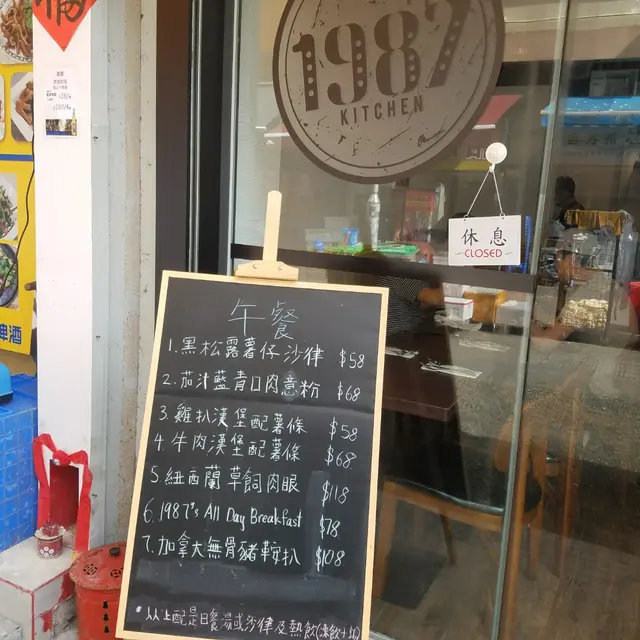 福
1987
KITCHEN
休息
CLOSED
午餐
1.黑松露薯仔沙律 $58
2.茄汁藍青口肉意粉 $68
3.雞扒漢堡配薯條 $58
4.牛肉漢堡配薯條 $68
5.紐西蘭草飼肉眼 $118
6.1987's All Day Breakfast $78
7.加拿大無骨豬鞍扒 $108
*以上配是日餐湯或沙律及熱飲(凍飲+$4)
啤酒